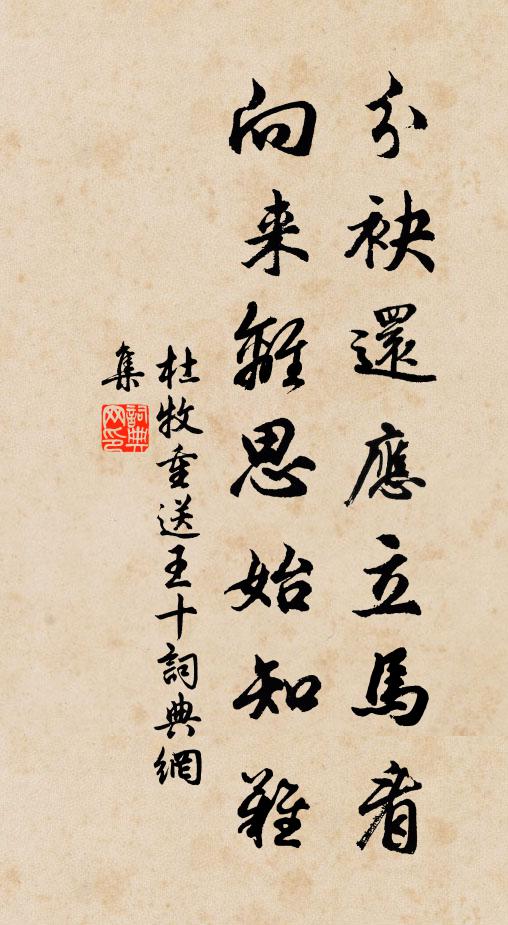 分袂還應立馬看
向来離思始知難
杜牧重送王十詞典網
集
詞典
网印